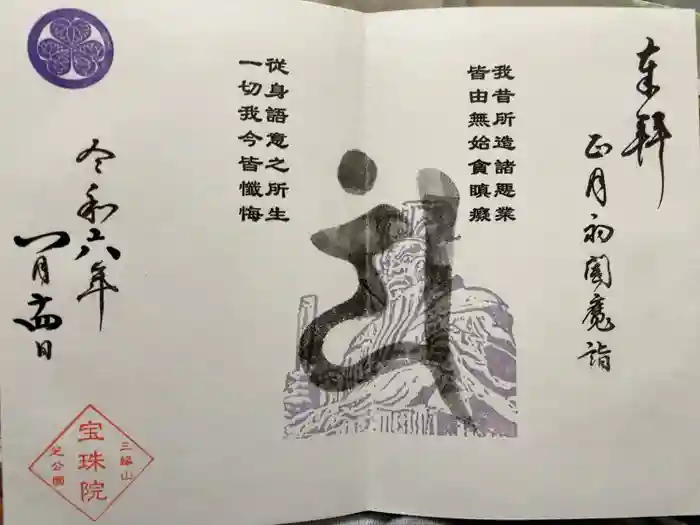 奉拝
正月初閻魔詣
我昔所造諸悪業
皆由無始貪瞋癡
従身語意之所生
一切我今皆懺悔
令和六年
一月十四日
三縁山
宝珠院
芝公園